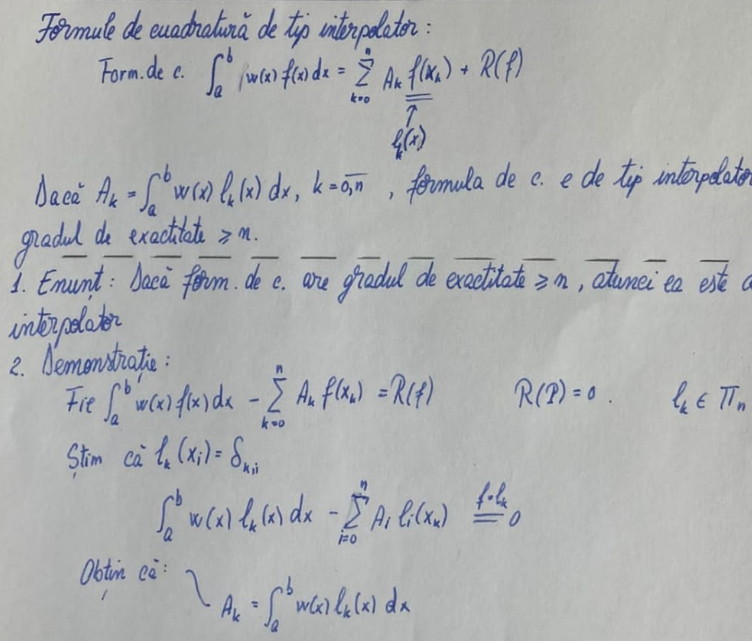 Formule de cuadratură de tip interpolator:
Form. de c. ∫_a^b w(x) f(x) dx = Σ_{k=0}^n A_k f(x_k) + R(f)
↑
l_k(x)
Dacă A_k = ∫_a^b w(x) l_k(x) dx, k = \overline{0,n}, formula de c. e de tip interpolator
gradul de exactitate ≥ n.
1. Enunț: Dacă form. de c. are gradul de exactitate ≥ n, atunci ea este
interpolator
2. Demonstrație:
Fie ∫_a^b w(x) f(x) dx - Σ_{k=0}^n A_k f(x_k) = R(f) R(P) = 0. l_k ∈ Π_n
Știm că l_k(x_i) = δ_{k,i}
∫_a^b w(x) l_k(x) dx - Σ_{i=0}^n A_i l_i(x_k) \overset{f=l_k}{=} 0
Obțin că:
A_k = ∫_a^b w(x) l_k(x) dx